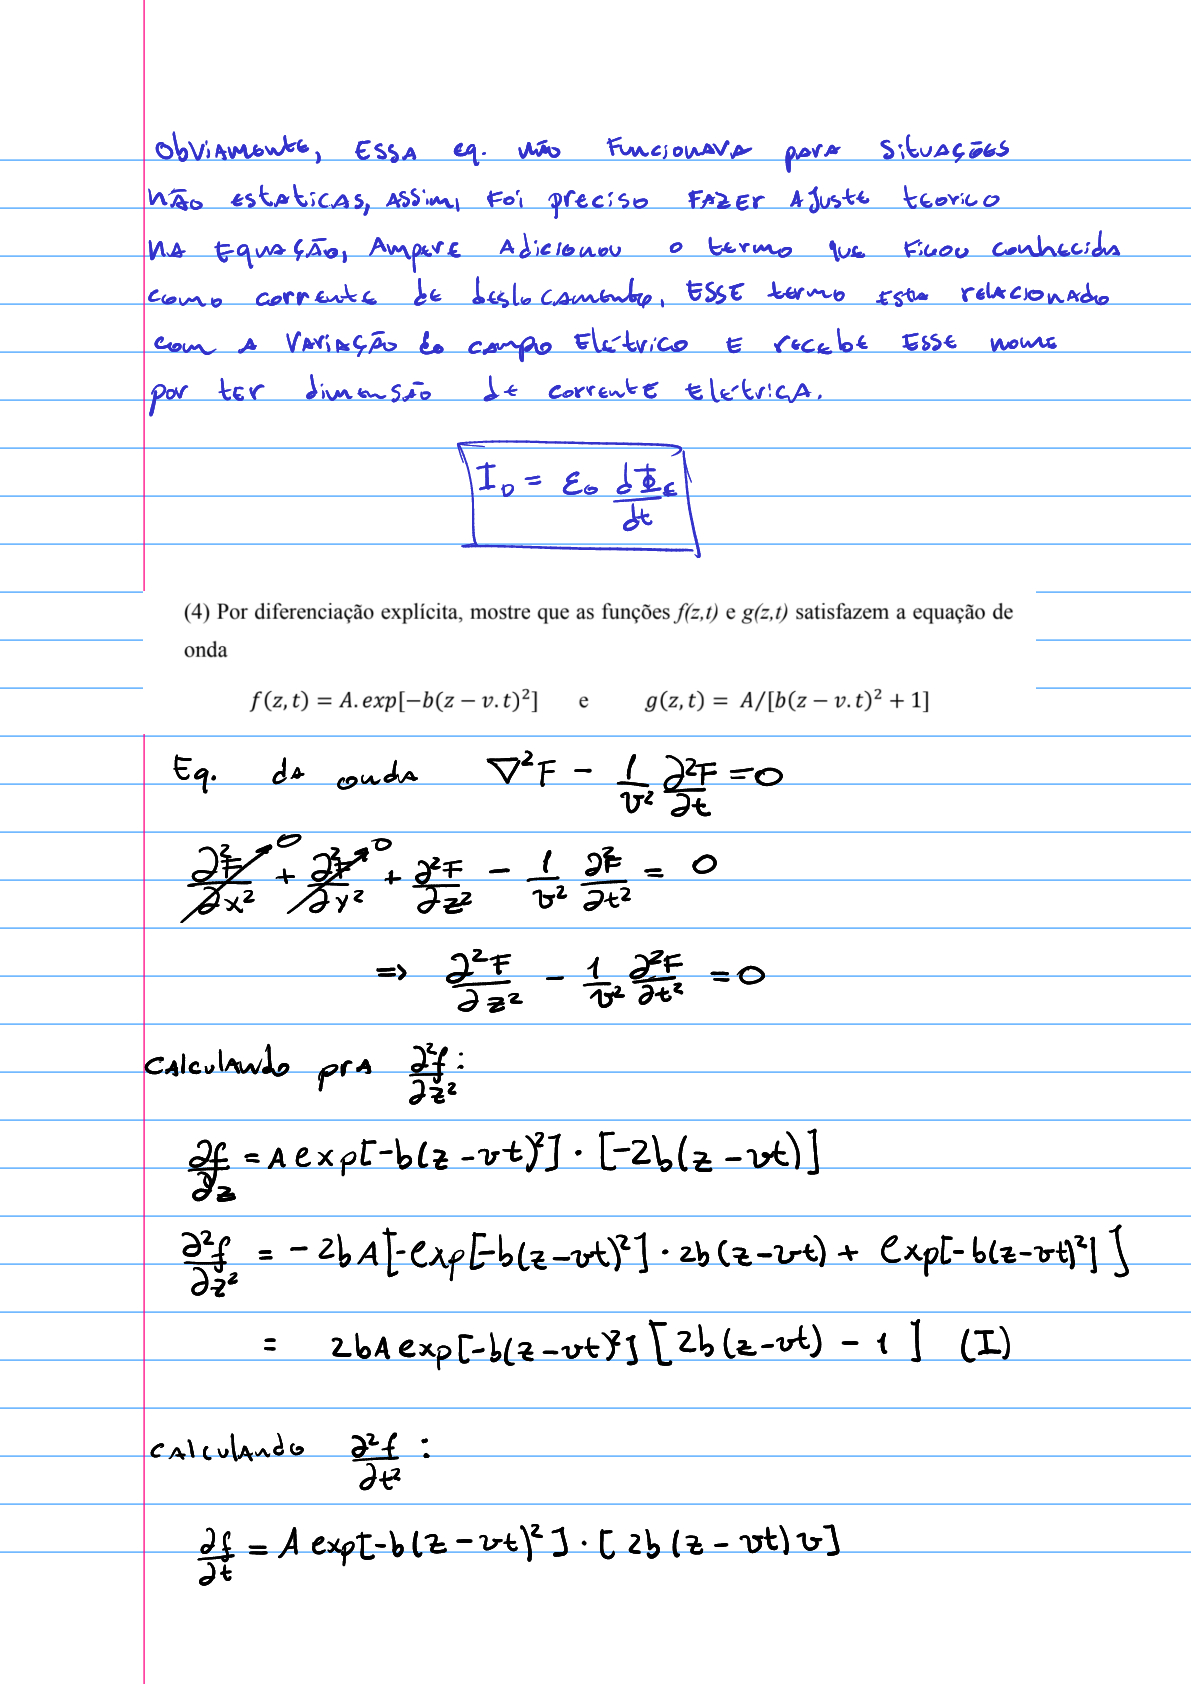 Obviamente, essa eq. não funcionava para situações
não estaticas, assim, foi preciso fazer ajuste teorico
na equação, Ampere adicionou o termo que ficou conhecida
como corrente de deslocamento, esse termo esta relacionado
com a variação do campo elétrico e recebe esse nome
por ter dimensão de corrente elétrica.
I_D = ε₀ dΦ_E/dt
(4) Por diferenciação explícita, mostre que as funções f(z,t) e g(z,t) satisfazem a equação de
onda
f(z, t) = A. exp[−b(z − v. t)²] e g(z, t) = A/[b(z − v. t)² + 1]
Eq. da onda ∇²F − 1/v² ∂²F/∂t = 0
∂²F/∂x² → 0 + ∂²F/∂y² → 0 + ∂²F/∂z² − 1/v² ∂²F/∂t² = 0
=> ∂²F/∂z² − 1/v² ∂²F/∂t² = 0
Calculando pra ∂²f/∂z² :
∂f/∂z = A exp[−b(z − vt)²] · [−2b(z − vt)]
∂²f/∂z² = −2bA[−exp[−b(z−vt)²] · 2b(z−vt) + exp[−b(z−vt)²]]
= 2bA exp[−b(z−vt)²] [2b(z−vt) − 1] (I)
Calculando ∂²f/∂t² :
∂f/∂t = A exp[−b(z − vt)²] · [2b(z − vt)v]